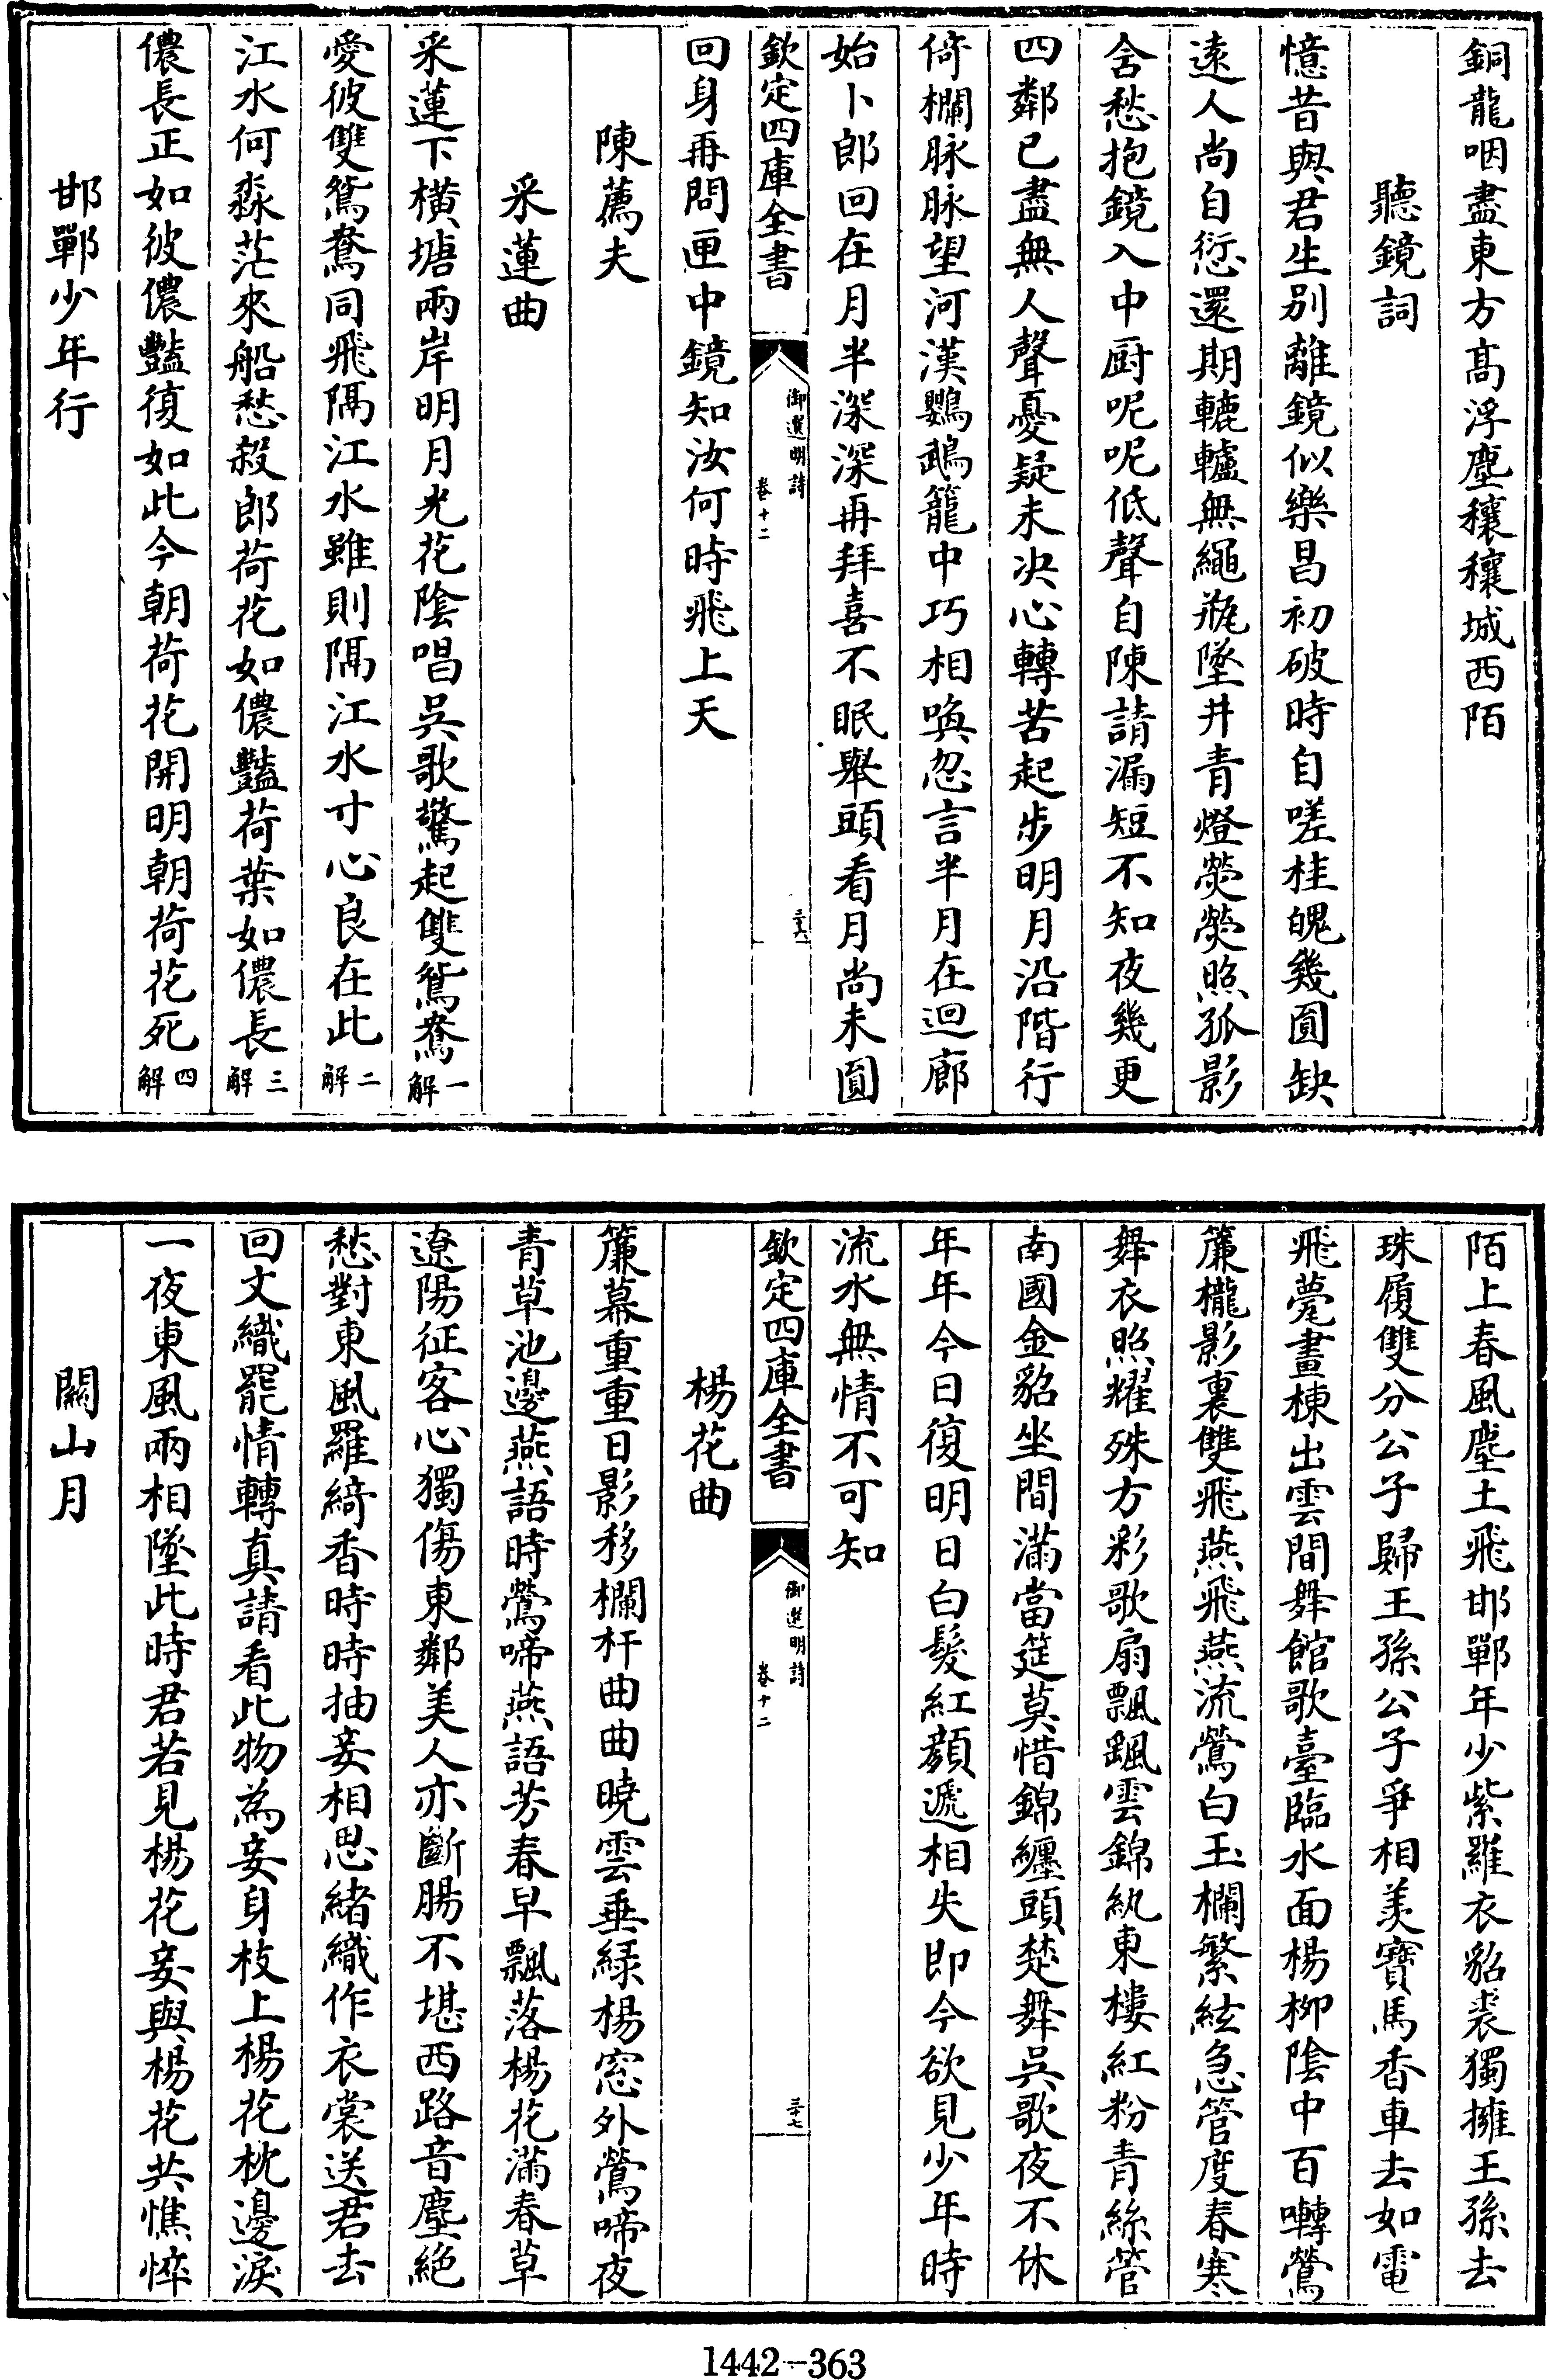 銅龍咽盡東方髙浮塵穰穰城西陌
聽鏡詞
憶昔與君生别離鏡似樂昌初破時自嗟桂魄幾圓缺
遠人尚自愆還期轆轤無繩甁墜井青燈熒熒照孤影
含愁抱鏡入中厨呢呢低聲自陳請漏短不知夜幾更
四鄰已盡無人聲憂疑未决心轉苦起步明月沿階行
倚欄脉脉望河漢鸚鵡籠中巧相喚忽言半月在迴廊
始卜郎回在月半深深再拜喜不眠舉頭看月尚未圓
欽定四庫全書
御選明詩
卷十二
三十六
回身再問匣中鏡知汝何時飛上天
陳薦夫
采蓮曲
采蓮下横塘兩岸明月光花陰唱吳歌驚起雙鴛鴦一解
愛彼雙鴛鴦同飛隔江水雖則隔江水寸心良在此二解
江水何淼茫來船愁殺郎荷花如儂豔荷葉如儂長三解
儂長正如彼儂豔復如此今朝荷花開明朝荷花死四解
邯鄲少年行
陌上春風塵土飛邯鄲年少紫羅衣貂裘獨擁王孫去
珠履雙分公子歸王孫公子爭相羡寶馬香車去如電
飛甍畫棟出雲間舞館歌臺臨水面楊栁陰中百囀鶯
簾櫳影裏雙飛燕飛燕流鶯白玉欄繁絃急管度春寒
舞衣照耀殊方彩歌扇飄颻雲錦紈東樓紅粉青絲管
南國金貂坐間滿當筵莫惜錦纏頭楚舞吳歌夜不休
年年今日復明日白髮紅顔遞相失即今欲見少年時
流水無情不可知
欽定四庫全書
御選明詩
卷十二
三十七
楊花曲
簾幕重重日影移欄杆曲曲曉雲垂緑楊窓外鶯啼夜
青草池邊燕語時鶯啼燕語芳春早飄落楊花滿春草
遼陽征客心獨傷東鄰美人亦斷腸不堪西路音塵絶
愁對東風羅綺香時時抽妾相思緒織作衣裳送君去
回文織罷情轉真請看此物為妾身枝上楊花枕邊淚
一夜東風兩相墜此時君若見楊花妾與楊花共憔悴
關山月
1442-363